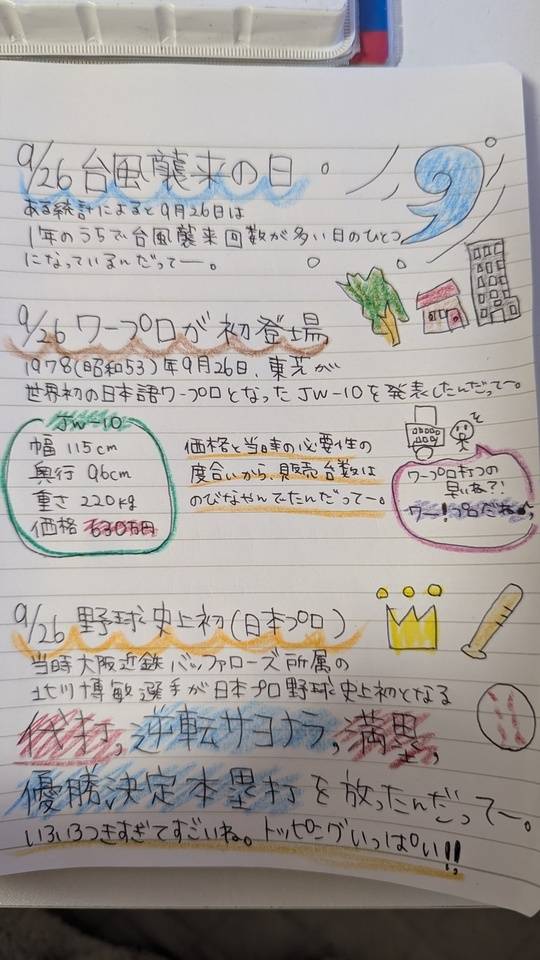 9/26 台風襲来の日
ある統計によると9月26日は
1年のうちで台風襲来回数が多い日のひとつ
になっているんだってー。
9/26 ワープロが初登場
1978(昭和53)年9月26日、東芝が
世界初の日本語ワープロとなったJW-10を発表したんだってー。
JW-10
幅 115cm
奥行 96cm
重さ 220kg
価格 630万円
価格と当時の必要性の
度合いから、販売台数は
のびなやんでたんだってー。
ワープロ打つの
早いね?!
ワー!プロだね♪
9/26 野球史上初(日本プロ)
当時大阪近鉄バッファローズ所属の
北川博敏選手が日本プロ野球史上初となる
代打,逆転サヨナラ,満塁,
優勝決定本塁打を放ったんだってー。
いろいろつきすぎてすごいね。トッピングいっぱい!!